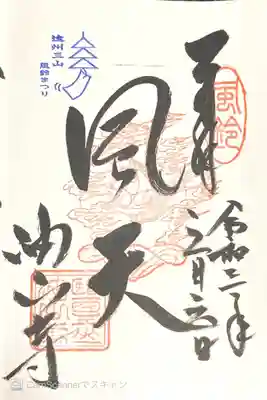 奉拝
風鈴
遠州三山
風鈴まつり
風天
令和二年
月六日
油山寺
CamScannerでスキャン